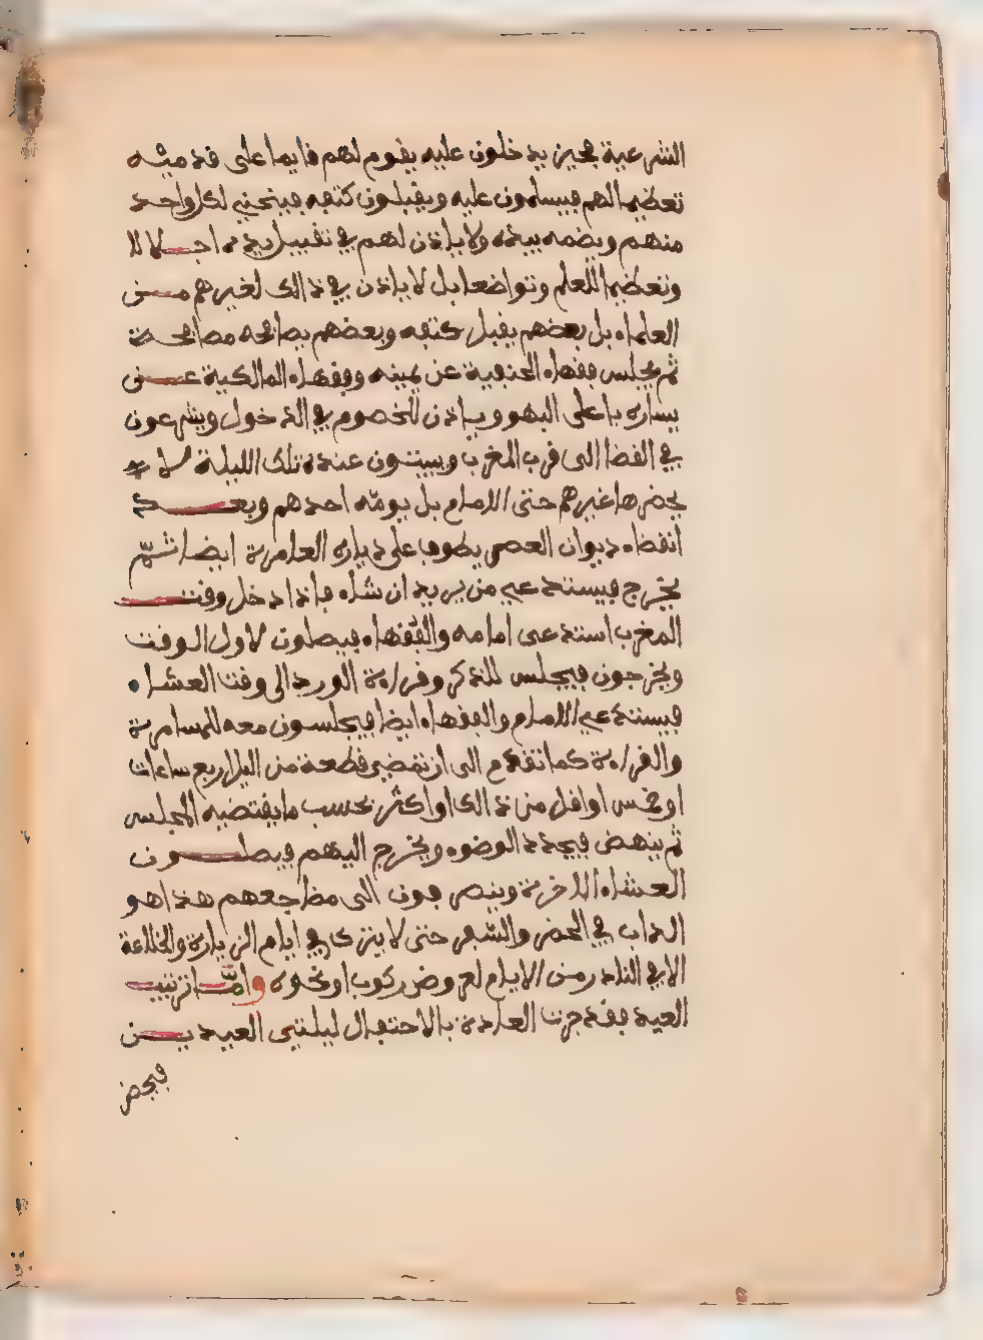 الشرعية فحين يدخلون عليه يقوم لهم قايما على قدميه
تعظيما لهم فيسلمون عليه ويقبلون كتفه فينحني لكل واحد
منهم ويضمه بيده ولا ياذن لهم في تقبيل يده اجلالا
وتعظيما للعلم وتواضعا بل لا ياذن في ذالك لغيرهم من
العلماء بل بعضهم يقبل كتفه وبعضهم يصافحه مصافحة
ثم يجلس فقهاء الحنفية عن يمينه وفقهاء المالكية عن
يساره باعلى البهو وياذن للخصوم في الدخول ويشرعون
في القضا الى قرب المغرب ويبيتون عنده تلك الليلة لا
يحضرها غيرهم حتى الامام بل يومّه احدهم وبعد
انقضاء ديوان العصر يطوف على دياره العامرة ايضا ثمّ
يخرج فيستدعي من يريد ان شاء فاذا دخل وقت
المغرب استدعى امامه والفقهاء فيصلون لاول الوقت
ويخرجون فيجلس للذكر وقراءة الورد الى وقت العشاء
فيستدعي الامام والفقهاء ايضا فيجلسون معه للمسامرة
والقراءة كما تقدم الى ان تمضي قطعة من اليل اربع ساعات
او خمس او اقل من ذالك او اكثر بحسب ما يقتضيه المجلس
ثم ينهض فيجدد الوضوء ويخرج اليهم فيصلون
العشاء الاخرة وينصرفون الى مضاجعهم هذا هو
الداب في الحضر والسفر حتى لا يترك في ايام الزيارة والخلاعة
الا في النادر من الايام لعروض ركوب او نحوه وامّا ترتيب
العيد فقد جرت العادة بالاحتفال ليلتي العيدين
فيحضر